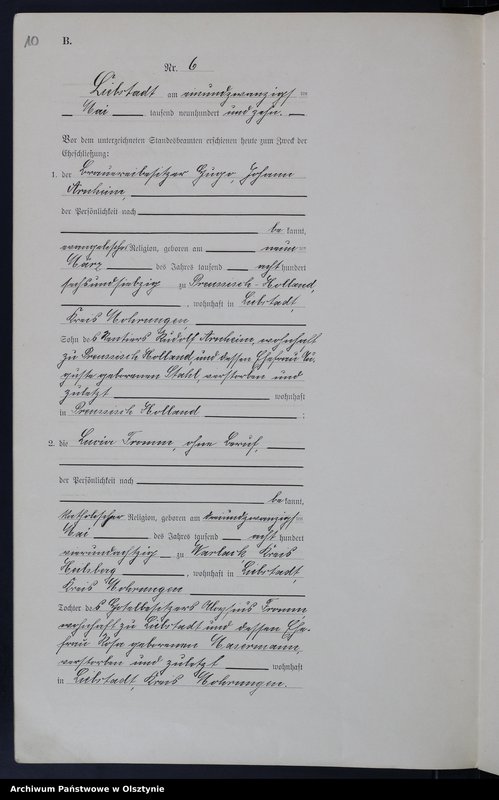 10
B.
Nr. 6
Liebstadt am neunundzwanzigsten
Mai tausend neunhundert und zehn.
Vor dem unterzeichneten Standesbeamten erschienen heute zum Zweck der
Eheschließung:
1. der Brauereibesitzer Hugo, Johann
Arnheim,
der Persönlichkeit nach
be kannt,
evangelischer Religion, geboren am neunten
März des Jahres tausend acht hundert
sechsundsiebzig zu Preussisch-Holland,
, wohnhaft in Liebstadt,
Kreis Mohrungen
Sohn des Rentiers Rudolf Arnheim, wohnhaft
zu Preussisch Holland, und dessen Ehefrau Au-
guste geborenen Stahl, verstorben und
zuletzt wohnhaft
in Preussisch Holland ;
2. die Fromm, ohne Beruf,
der Persönlichkeit nach
be kannt,
katholischer Religion, geboren am
Mai des Jahres tausend acht hundert
vierundachtzig zu Warlack Kreis
Heilsberg , wohnhaft in Liebstadt,
Kreis Mohrungen
Tochter des Hotelbesitzers Aloysius Fromm
wohnhaft zu Liebstadt und dessen Ehe-
frau Rosa geborenen
verstorben und zuletzt wohnhaft
in Liebstadt, Kreis Mohrungen.
Archiwum Państwowe w Olsztynie